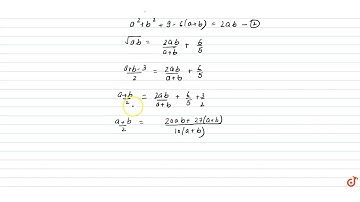 a² + b² + 9 - 6(a+b) = 2ab - ②
√ab = 2ab/(a+b) + 6/5
(a+b-3)/2 = 2ab/(a+b) + 6/5
(a+b)/2 = 2ab/(a+b) + 6/5 + 3/2
(a+b)/2 = (20ab + 27(a+b))/(10(a+b))